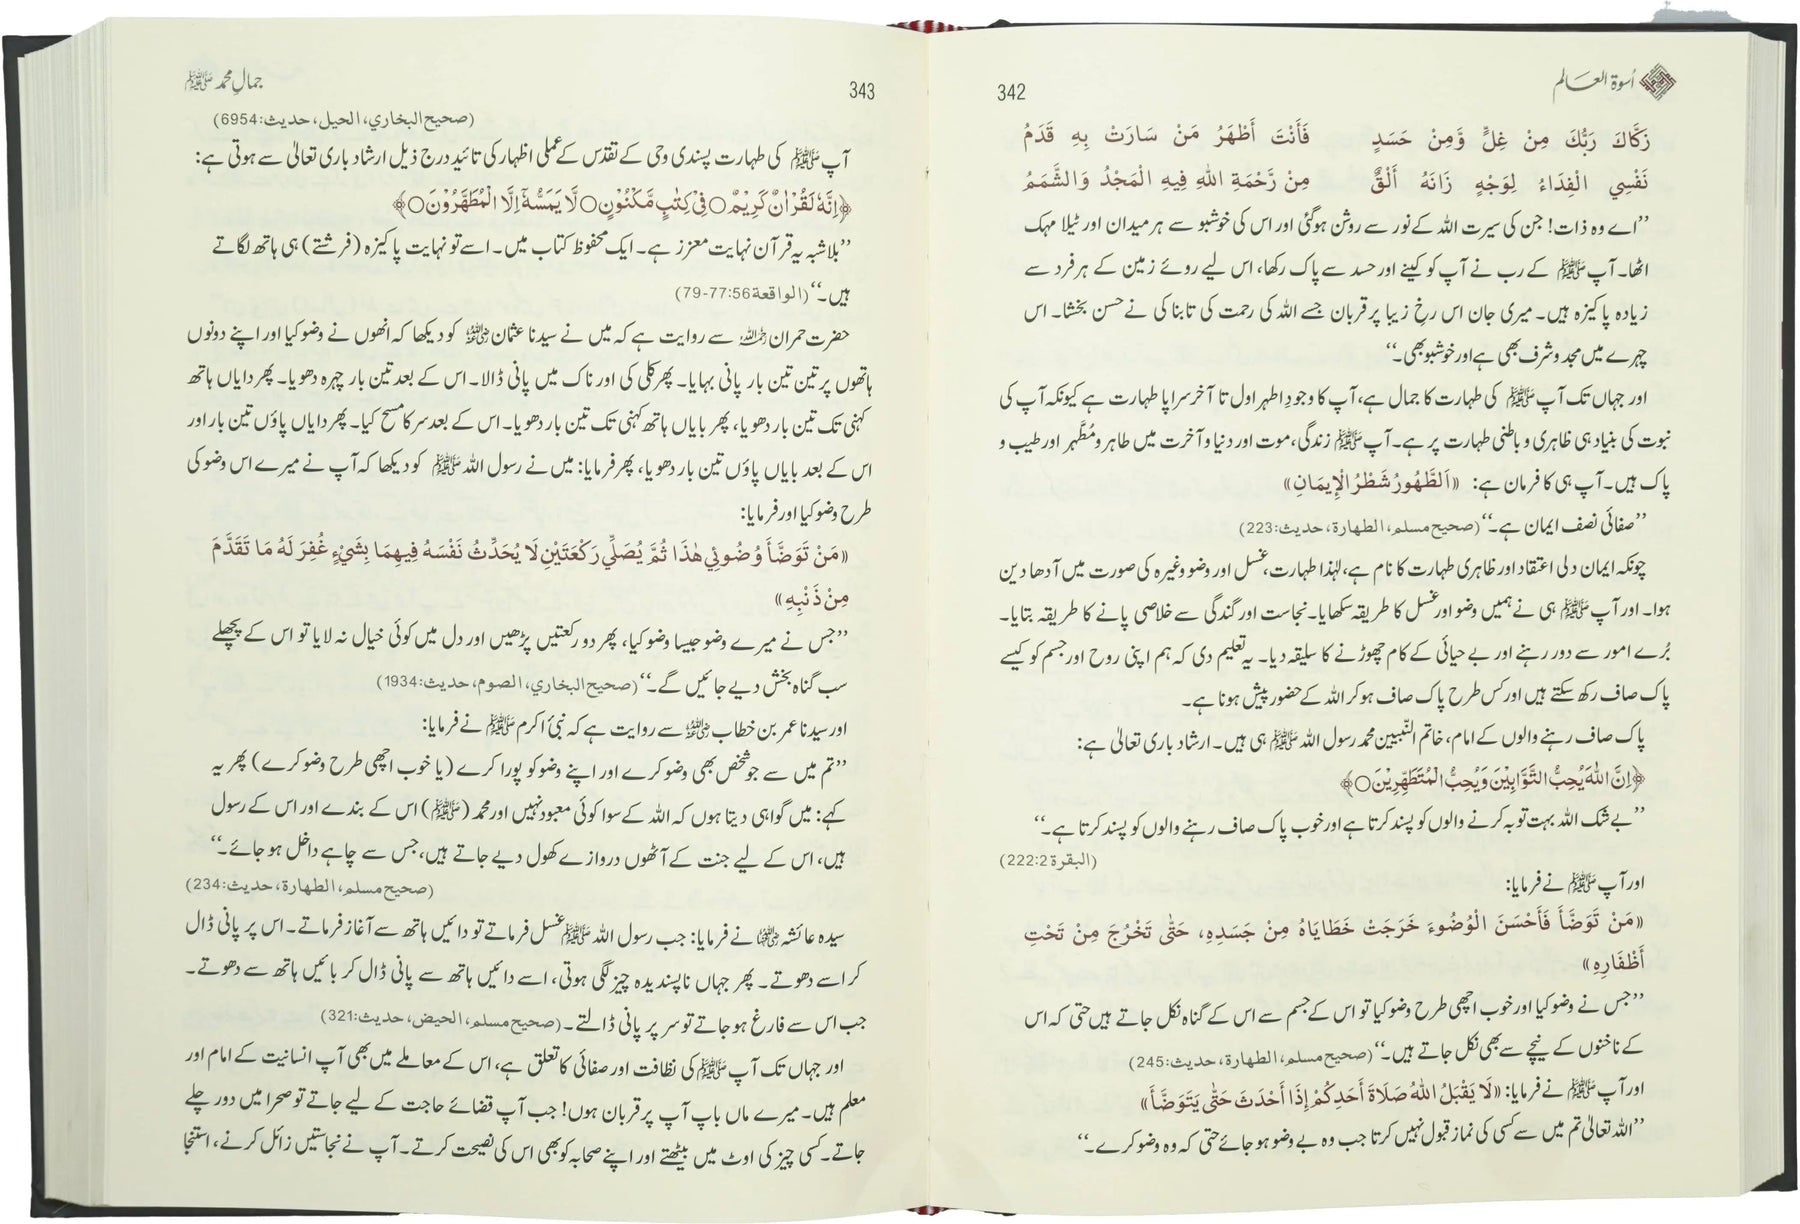 اُسوۃ العالم
342
زَكَّاكَ رَبُّكَ مِنْ غِلٍّ وَّمِنْ حَسَدٍ فَأَنْتَ أَطْهَرُ مَنْ سَارَتْ بِهِ قَدَمُ
نَفْسِي الْفِدَاءُ لِوَجْهٍ زَانَهُ أَلَقٌ مِنْ رَّحْمَةِ اللهِ فِيهِ الْمَجْدُ وَالشَّمَمُ
’’اے وہ ذات! جن کی سیرت اللہ کے نور سے روشن ہوگئی اور اس کی خوشبو سے ہر میدان اور ٹیلا مہک
اٹھا۔ آپ ﷺ کے رب نے آپ کو کینے اور حسد سے پاک رکھا، اس لیے روئے زمین کے ہر فرد سے
زیادہ پاکیزہ ہیں۔ میری جان اس رخِ زیبا پر قربان جسے اللہ کی رحمت کی تابناکی نے حسن بخشا۔ اس
چہرے میں مجد و شرف بھی ہے اور خوشبو بھی۔‘‘
اور جہاں تک آپ ﷺ کی طہارت کا جمال ہے، آپ کا وجودِ اطہر اول تا آخر سراپا طہارت ہے کیونکہ آپ کی
نبوت کی بنیاد ہی ظاہری و باطنی طہارت پر ہے۔ آپ ﷺ زندگی، موت اور دنیا و آخرت میں طاہر و مُطَہَّر اور طیب و
پاک ہیں۔ آپ ہی کا فرمان ہے: «اَلطَّهُورُ شَطْرُ الْإِيمَانِ»
’’صفائی نصف ایمان ہے۔‘‘ (صحيح مسلم، الطهارة، حديث:223)
چونکہ ایمان دلی اعتقاد اور ظاہری طہارت کا نام ہے، لہٰذا طہارت، غسل اور وضو وغیرہ کی صورت میں آدھا دین
ہوا۔ اور آپ ﷺ ہی نے ہمیں وضو اور غسل کا طریقہ سکھایا۔ نجاست اور گندگی سے خلاصی پانے کا طریقہ بتایا۔
بُرے امور سے دور رہنے اور بے حیائی کے کام چھوڑنے کا سلیقہ دیا۔ یہ تعلیم دی کہ ہم اپنی روح اور جسم کو کیسے
پاک صاف رکھ سکتے ہیں اور کس طرح پاک صاف ہو کر اللہ کے حضور پیش ہونا ہے۔
پاک صاف رہنے والوں کے امام، خاتم النّبیین محمد رسول اللہ ﷺ ہی ہیں۔ ارشاد باری تعالیٰ ہے:
﴿اِنَّ اللّٰهَ يُحِبُّ التَّوَّابِيْنَ وَيُحِبُّ الْمُتَطَهِّرِيْنَ○﴾
’’بے شک اللہ بہت توبہ کرنے والوں کو پسند کرتا ہے اور خوب پاک صاف رہنے والوں کو پسند کرتا ہے۔‘‘
(البقرة 222:2)
اور آپ ﷺ نے فرمایا:
«مَنْ تَوَضَّأَ فَأَحْسَنَ الْوُضُوءَ خَرَجَتْ خَطَايَاهُ مِنْ جَسَدِهِ، حَتَّى تَخْرُجَ مِنْ تَحْتِ
أَظْفَارِهِ»
’’جس نے وضو کیا اور خوب اچھی طرح وضو کیا تو اس کے جسم سے اس کے گناہ نکل جاتے ہیں حتی کہ اس
کے ناخنوں کے نیچے سے بھی نکل جاتے ہیں۔‘‘ (صحيح مسلم، الطهارة، حديث:245)
اور آپ ﷺ نے فرمایا: «لَا يَقْبَلُ اللهُ صَلَاةَ أَحَدِكُمْ إِذَا أَحْدَثَ حَتّٰى يَتَوَضَّأَ»
’’اللہ تعالیٰ تم میں سے کسی کی نماز قبول نہیں کرتا جب وہ بے وضو ہو جائے حتی کہ وہ وضو کرے۔‘‘
343
جمالِ محمد ﷺ
(صحيح البخاري، الحيل، حديث:6954)
آپ ﷺ کی طہارت پسندی وحی کے تقدس کے عملی اظہار کی تائید درج ذیل ارشاد باری تعالیٰ سے ہوتی ہے:
﴿اِنَّهٗ لَقُرْاٰنٌ كَرِيْمٌ○ فِيْ كِتٰبٍ مَّكْنُوْنٍ○ لَّا يَمَسُّهٗٓ اِلَّا الْمُطَهَّرُوْنَ○﴾
’’بلاشبہ یہ قرآن نہایت معزز ہے۔ ایک محفوظ کتاب میں۔ اسے تو نہایت پاکیزہ (فرشتے) ہی ہاتھ لگاتے
ہیں۔‘‘ (الواقعة 77:56-79)
حضرت حمران رحمہ اللہ سے روایت ہے کہ میں نے سیدنا عثمان رضی اللہ عنہ کو دیکھا کہ انھوں نے وضو کیا اور اپنے دونوں
ہاتھوں پر تین تین بار پانی بہایا۔ پھر کلی کی اور ناک میں پانی ڈالا۔ اس کے بعد تین بار چہرہ دھویا۔ پھر دایاں ہاتھ
کہنی تک تین بار دھویا، پھر بایاں ہاتھ کہنی تک تین بار دھویا۔ اس کے بعد سر کا مسح کیا۔ پھر دایاں پاؤں تین بار اور
اس کے بعد بایاں پاؤں تین بار دھویا، پھر فرمایا: میں نے رسول اللہ ﷺ کو دیکھا کہ آپ نے میرے اس وضو کی
طرح وضو کیا اور فرمایا:
«مَنْ تَوَضَّأَ وُضُوئِي هٰذَا ثُمَّ يُصَلِّي رَكْعَتَيْنِ لَا يُحَدِّثُ نَفْسَهُ فِيهِمَا بِشَيْءٍ غُفِرَ لَهُ مَا تَقَدَّمَ
مِنْ ذَنْبِهِ»
’’جس نے میرے وضو جیسا وضو کیا، پھر دو رکعتیں پڑھیں اور دل میں کوئی خیال نہ لایا تو اس کے پچھلے
سب گناہ بخش دیے جائیں گے۔‘‘ (صحيح البخاري، الصوم، حديث:1934)
اور سیدنا عمر بن خطاب رضی اللہ عنہ سے روایت ہے کہ نبیٔ اکرم ﷺ نے فرمایا:
’’تم میں سے جو شخص بھی وضو کرے اور اپنے وضو کو پورا کرے (یا خوب اچھی طرح وضو کرے) پھر یہ
کہے: میں گواہی دیتا ہوں کہ اللہ کے سوا کوئی معبود نہیں اور محمد (ﷺ) اس کے بندے اور اس کے رسول
ہیں، اس کے لیے جنت کے آٹھوں دروازے کھول دیے جاتے ہیں، جس سے چاہے داخل ہو جائے۔‘‘
(صحيح مسلم، الطهارة، حديث:234)
سیدہ عائشہ رضی اللہ عنہا نے فرمایا: جب رسول اللہ ﷺ غسل فرماتے تو دائیں ہاتھ سے آغاز فرماتے۔ اس پر پانی ڈال
کر اسے دھوتے۔ پھر جہاں ناپسندیدہ چیز لگی ہوتی، اسے دائیں ہاتھ سے پانی ڈال کر بائیں ہاتھ سے دھوتے۔
جب اس سے فارغ ہو جاتے تو سر پر پانی ڈالتے۔ (صحيح مسلم، الحيض، حديث:321)
اور جہاں تک آپ ﷺ کی نظافت اور صفائی کا تعلق ہے، اس کے معاملے میں بھی آپ انسانیت کے امام اور
معلم ہیں۔ میرے ماں باپ آپ پر قربان ہوں! جب آپ قضائے حاجت کے لیے جاتے تو صحرا میں دور چلے
جاتے۔ کسی چیز کی اوٹ میں بیٹھتے اور اپنے صحابہ کو بھی اس کی نصیحت کرتے۔ آپ نے نجاستیں زائل کرنے، استنجا